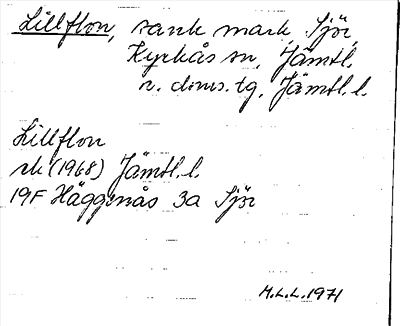 Lillflon, sank mark, Sjör,
Kyrkås sn, Jämtl.
n. doms. tg, Jämtl. l.
Lillflon
rk (1968) Jämtl. l.
19F Häggenås 3a Sjör
M.L.L. 1971